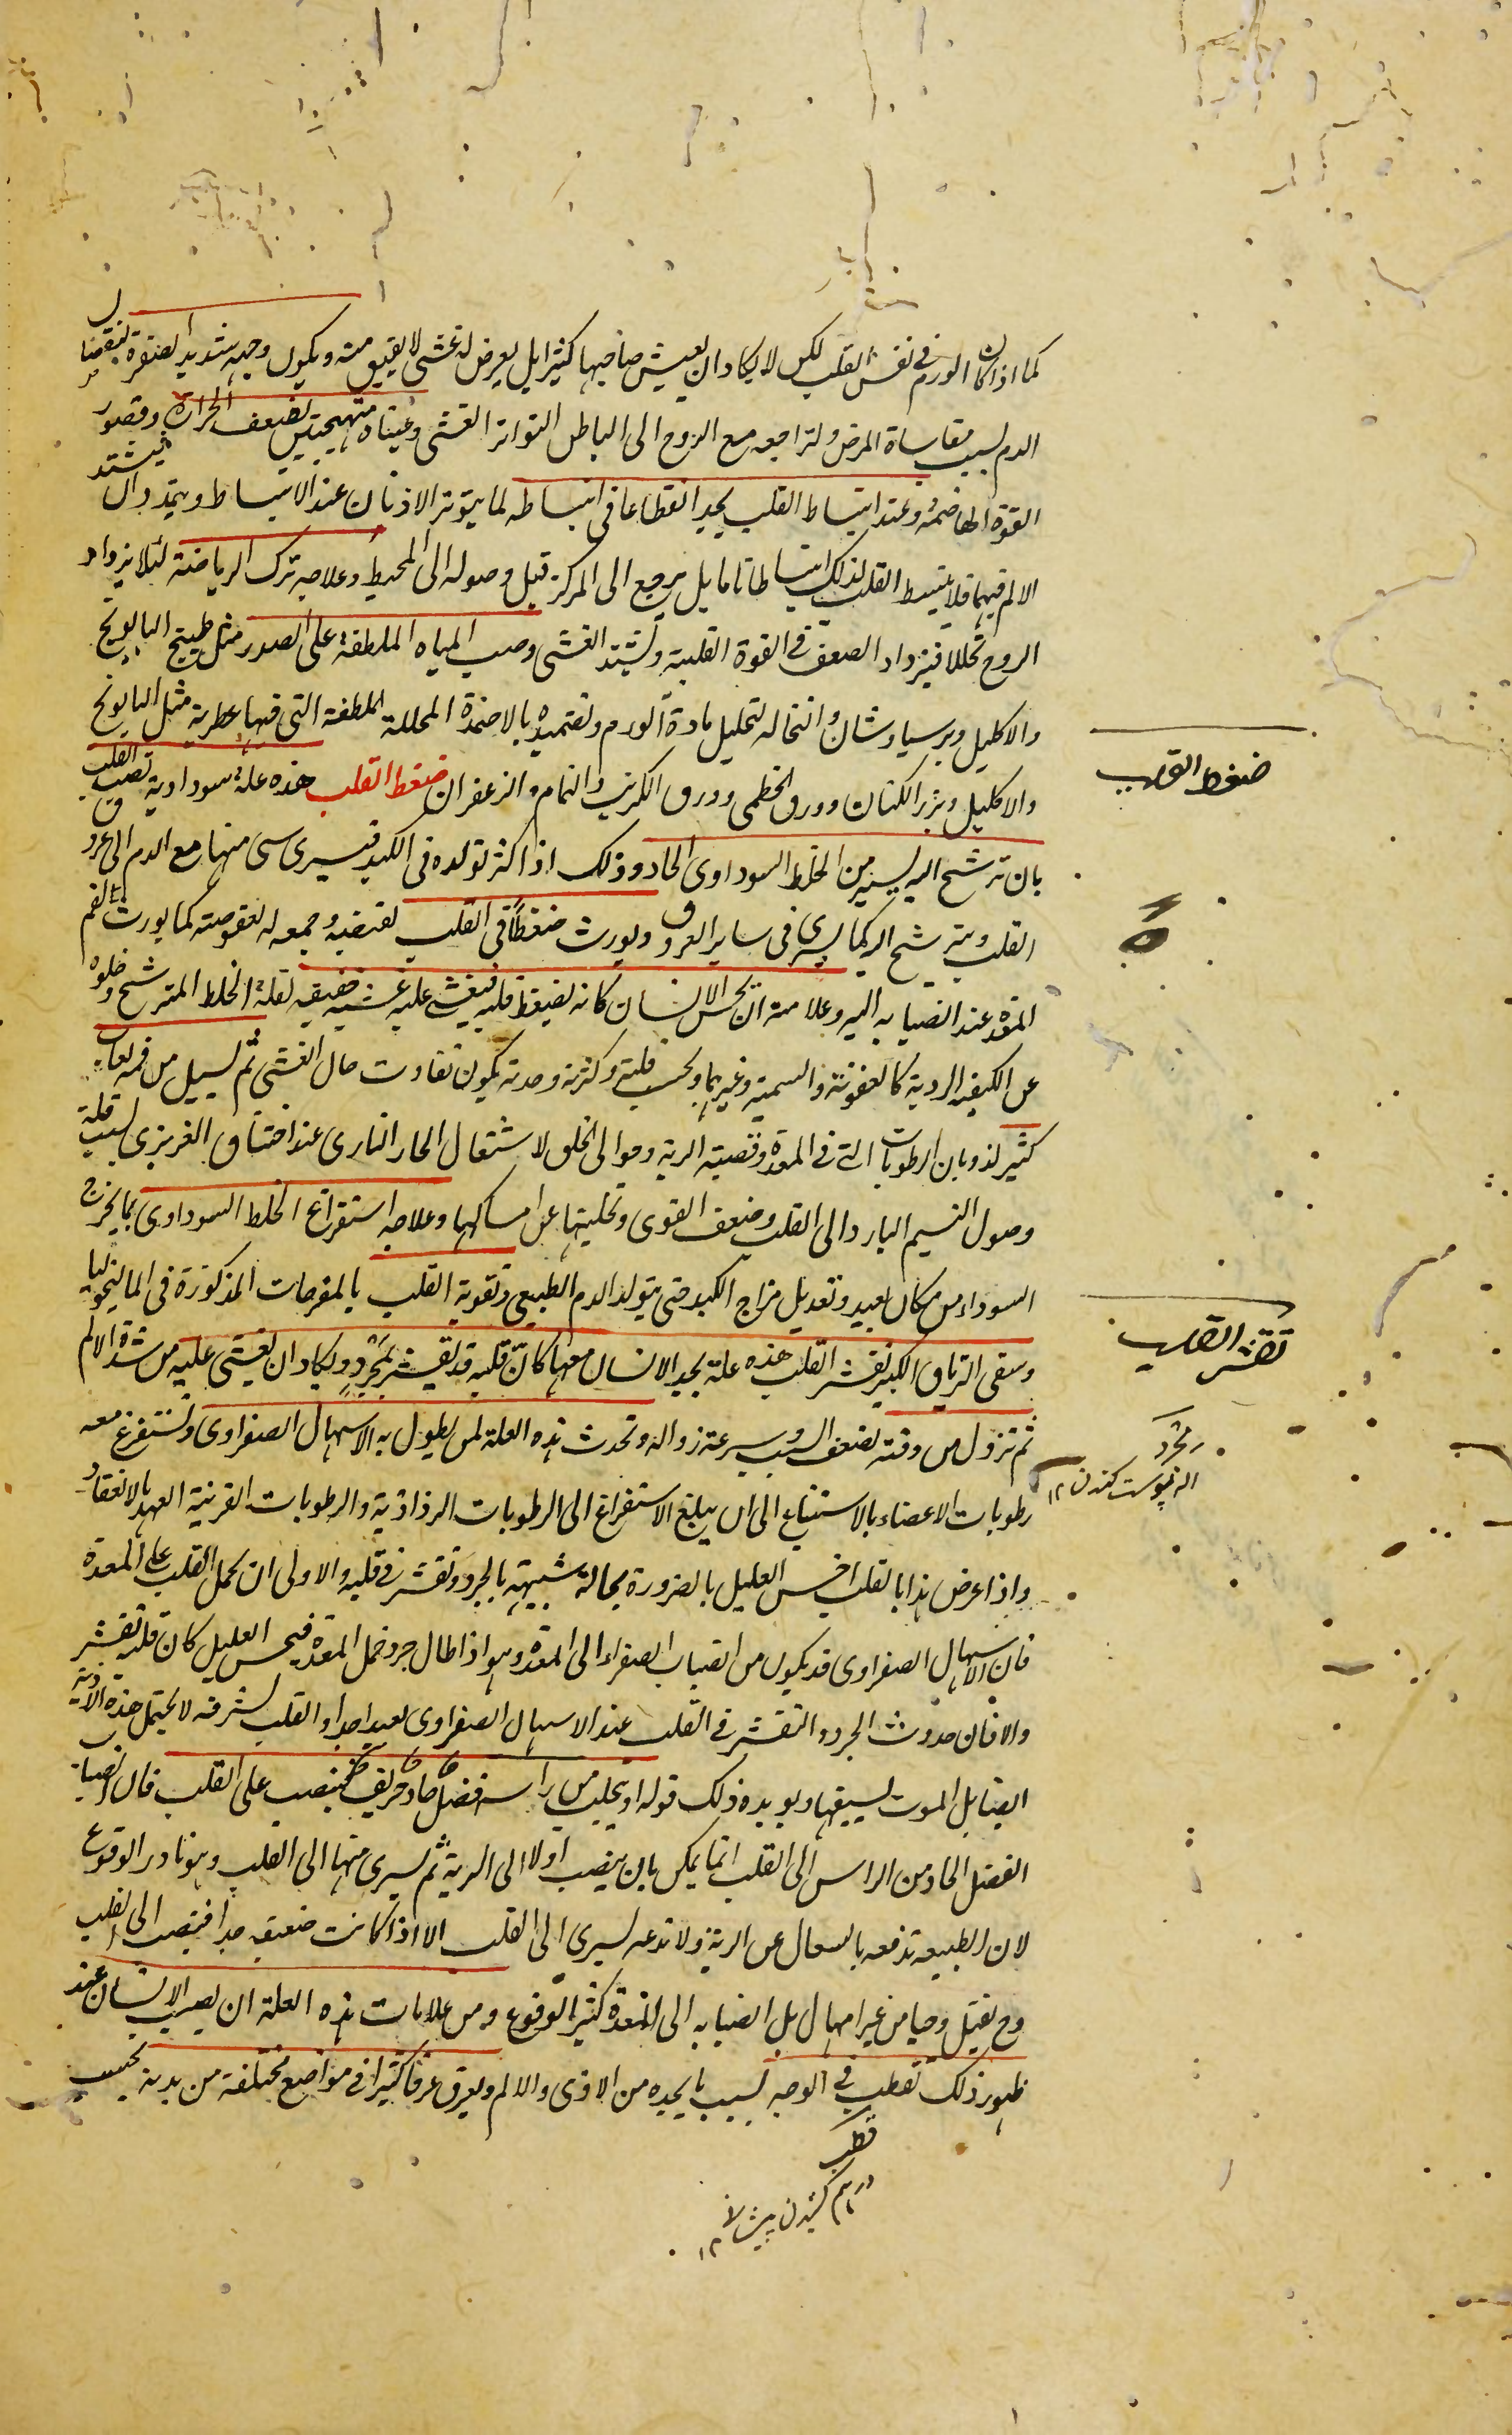 كما اذا كان الورم فى نفس القلب لكن لا يكاد ان يعيش صاحبها كثيرا بل يعرض له غشى لا يفيق منه ويكون وجهه شديد الصفرة لنقصان
الدم بسبب مقاساة المرض ولتراجعه مع الروح الى الباطن لتواتر الغشى وعيناه متهيجتين لضعف الحرارة وقصور
القوة الهاضمة وعند انبساط القلب يجد انقطاعا فى انبساطه لما يتوتر الاذنان عند الانبساط ويتمدد ان فيشتد
الالم فيهما فلا ينبسط القلب لذلك انبساطا تاما بل يرجع الى المركز قبل وصوله الى المحيط وعلاجه ترك الرياضة لئلا يزداد
الروح تحللا فيزداد الضعف فى القوة القلبية ويشتد الغشى وصب المياه الملطفة على الصدر مثل طبيخ البابونج
والاكليل وبرسياوشان والنخالة لتحليل مادة الورم وتضميده بالاضمدة المحللة الملطفة التى فيها عطرية مثل البابونج
والاكليل وبزر الكتان وورق الخطمى وورق الكرنب والنمام والزعفران ضغط القلب هذه علة سوداوية تصيب القلب
بان ترشح اليه يسير من الخلط السوداوى الحاد وذلك اذا كثر تولده فى الكبد فيسرى شى منها مع الدم الى عروق
القلب ويترشح اليه كما يسرى فى ساير العروق ويورث ضغطا فى القلب لقبضه وجمعه له لعفوصته كما يورث الفم
المعدة عند انصبابه اليه وعلامته ان يحس الانسان كانه يضغط قلبه فيغشى عليه غشية خفيفة لقلة الخلط المترشح وخلوه
عن الكيفية الردية كالعفونة والسمية وغيرهما وبحسب قلته وكثرته وحدته يكون تفاوت حال الغشى ثم يسيل من فمه لعاب
كثير لذوبان الرطوبات التى فى المعدة وقصبة الرية وحوالى الحلق لاشتعال الحار النارى عند اختناق الغريزى بسبب قلة
وصول النسيم البارد الى القلب وضعف القوى وتخليتها عن امساكها وعلاجه استفراغ الخلط السوداوى بما يخرج
السوداء من مكان بعيد وتعديل مزاج الكبد حتى يتولد الدم الطبيعى وتقوية القلب بالمفرحات المذكورة فى الماليخوليا
وسقى الترياق الكبير تقشر القلب هذه علة يجد الانسان معها كان قلبه قد يقشر بمجرد ويكاد ان يغشى عليه من شدة الالم
ثم تزول من وقته لضعف السبب وسرعة زواله وتحدث هذه العلة لمن يطول به الاسهال الصفراوى وتستفرغ معه
رطوبات الاعضاء بالاستتباع الى ان يبلغ الاستفراغ الى الرطوبات الرذاذية والرطوبات القريبة العهد بالانعقاد
واذا عرض هذا بالقلب احس العليل بالضرورة بحالة شبيهة بالجرد وتقشر فى قلبه والاولى ان يحمل القلب على المعدة
فان الاسهال الصفراوى قد يكون من انصباب الصفراء الى المعدة وهو اذا طال جرد خمل المعدة فيحس العليل كان قلبه تقشر
والا فان حدوث الجرد والتقشر فى القلب عند الاسهال الصفراوى بعيد جدا والقلب لشرفه لا يحتمل هذه الاذية
ايضا بل الموت يسبقها ويويده ذلك قوله او يتحلب من راسه فضل حاد حريف فينصب على القلب فان انصباب
الفضل الحاد من الراس الى القلب انما يمكن بان ينصب اولا الى الرية ثم يسرى منها الى القلب وهو نادر الوقوع
لان الطبيعة تدفعه بالسعال عن الرية ولا تدعه يسرى الى القلب الا اذا كانت ضعيفة جدا فينصب الى القلب
وح يقتل وحيا من غير امهال بل انصبابه الى المعدة كثير الوقوع ومن علامات هذه العلة ان يصيب الانسان عند
ظهور ذلك تقطب فى الوجه بسبب ما يجده من الاذى والالم ويعرق عرقا كثيرا فى مواضع مختلفة من بدنه بحسب
ضغط القلب
تقشر القلب
مجرد
اله پوست كندن ١٢
قطب
درهم كشيدن پيشانى ١٢